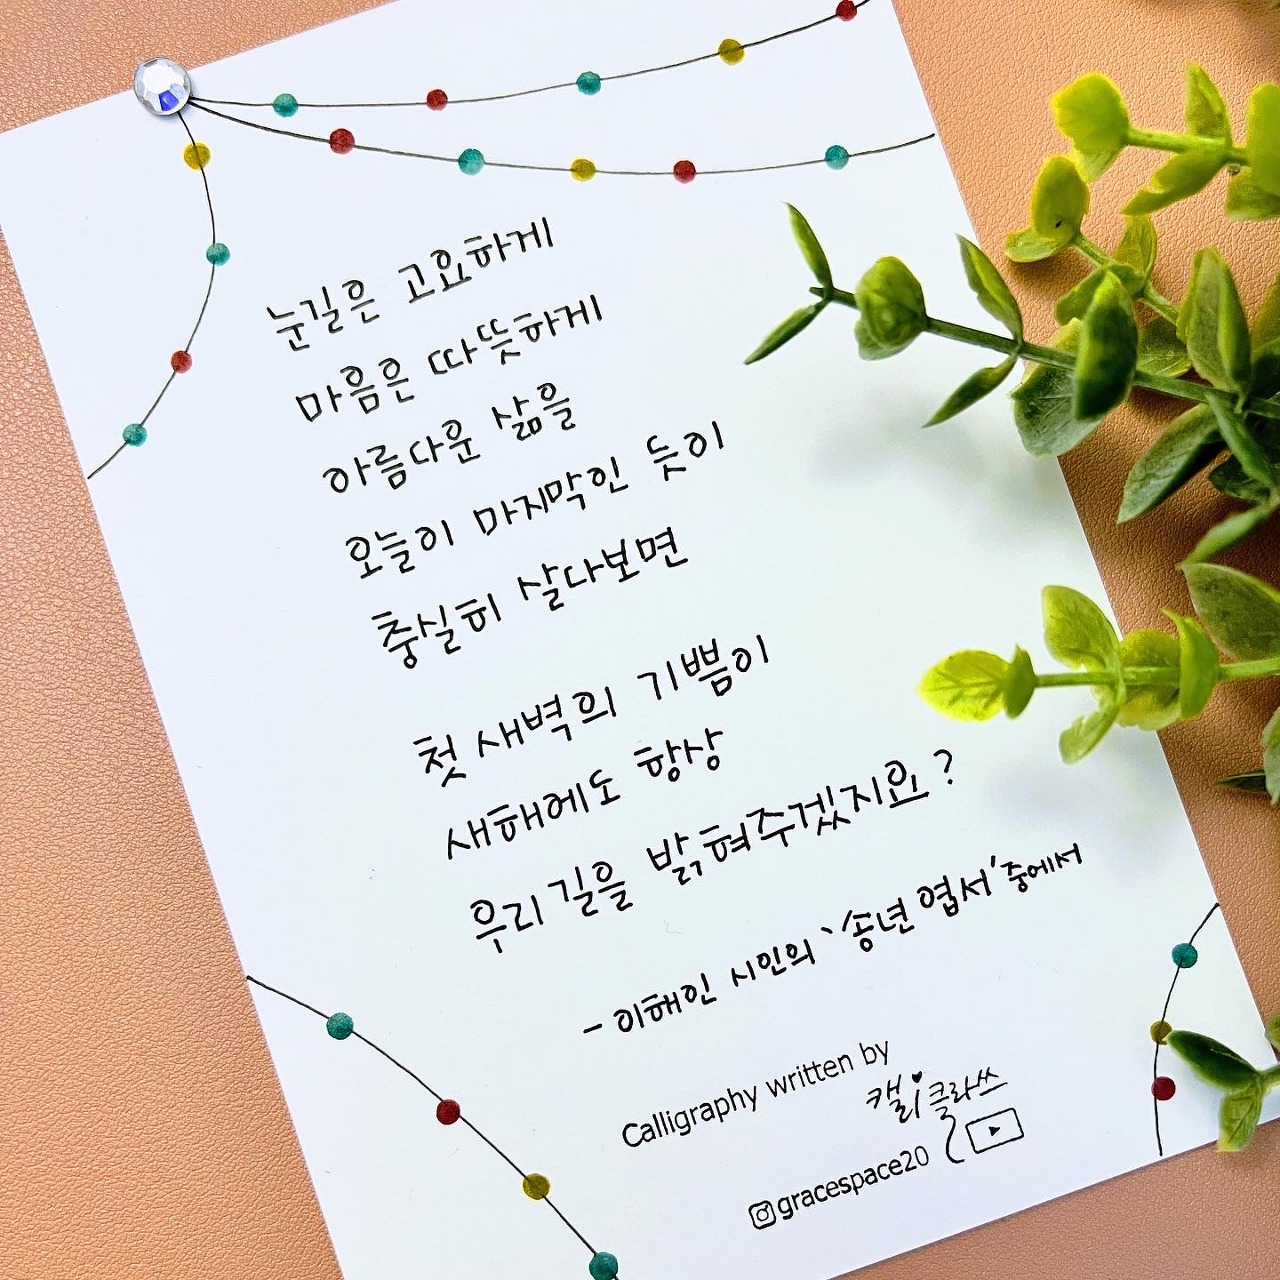 눈길은 고요하게
마음은 따뜻하게
아름다운 삶을
오늘이 마지막인 듯이
충실히 살다보면
첫 새벽의 기쁨이
새해에도 항상
우리 길을 밝혀주겠지요?
- 이해인 시인의 '송년 엽서' 중에서
Calligraphy written by
캘리클라쓰
gracespace20